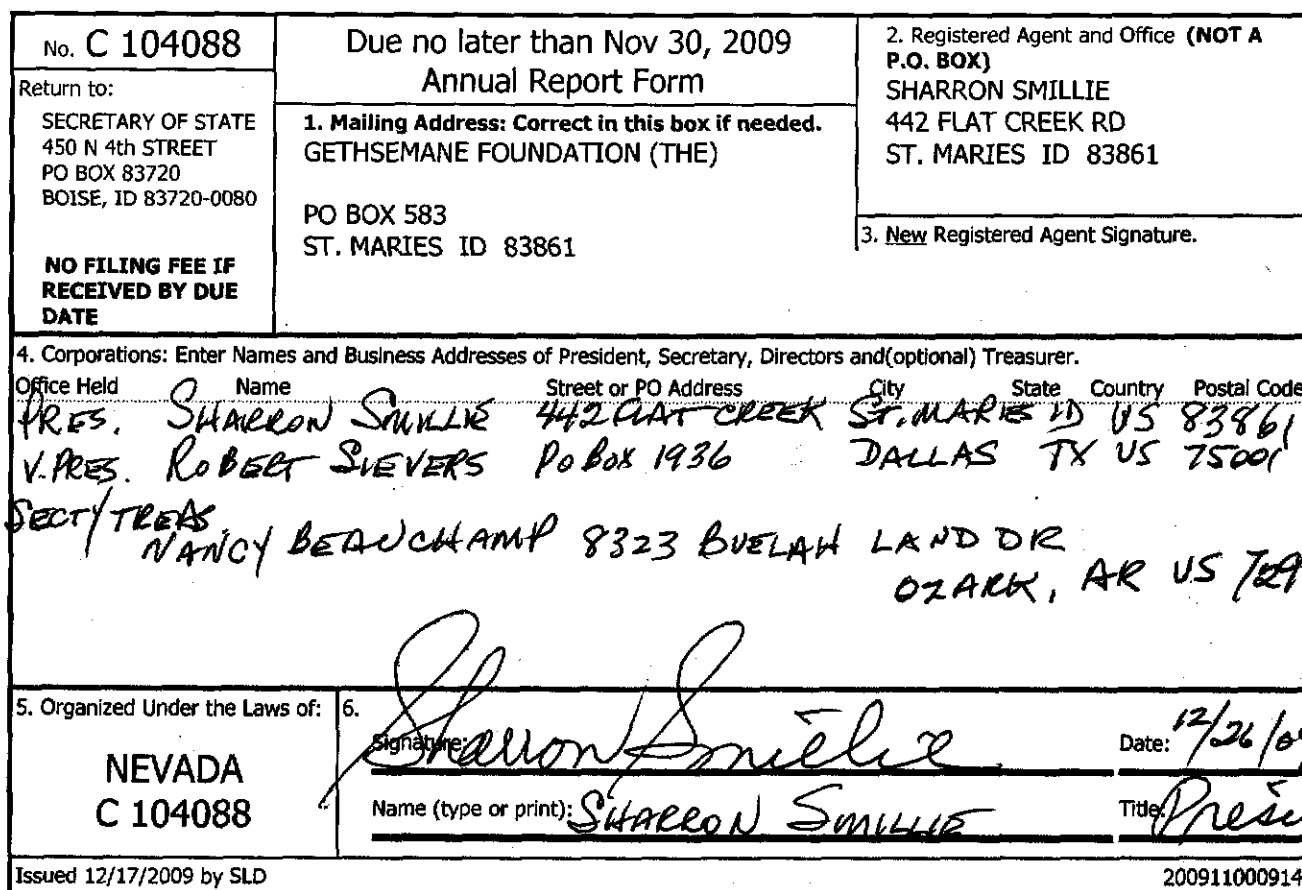 No. C 104088
Return to:
SECRETARY OF STATE
450 N 4th STREET
PO BOX 83720
BOISE, ID 83720-0080
NO FILING FEE IF
RECEIVED BY DUE
DATE
Due no later than Nov 30, 2009
Annual Report Form
1. Mailing Address: Correct in this box if needed.
GETHSEMANE FOUNDATION (THE)
PO BOX 583
ST. MARIES ID 83861
2. Registered Agent and Office (NOT A
P.O. BOX)
SHARRON SMILLIE
442 FLAT CREEK RD
ST. MARIES ID 83861
3. New Registered Agent Signature.
4. Corporations: Enter Names and Business Addresses of President, Secretary, Directors and(optional) Treasurer.
Office Held Name Street or PO Address City State Country Postal Code
PRES. SHARRON SMILLIE 442 FLAT CREEK ST. MARIES ID US 83861
V. PRES. ROBERT SIEVERS PO BOX 1936 DALLAS TX US 75001
SECTY/TREAS.
NANCY BEAUCHAMP 8323 BUELAH LAND DR
OZARK, AR US 729
5. Organized Under the Laws of:
NEVADA
C 104088
6.
Signature: Sharron Smillie Date: 12/26/09
Name (type or print): SHARRON SMILLIE Title: Presi
Issued 12/17/2009 by SLD 200911000914